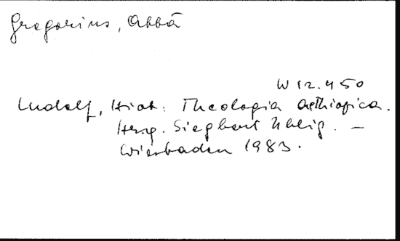 Gregorius, Abbā
W 12.450
Ludolf, Hiob: Theologia aethiopica.
Hrsg. Siegbert Uhlig. —
Wiesbaden 1983.